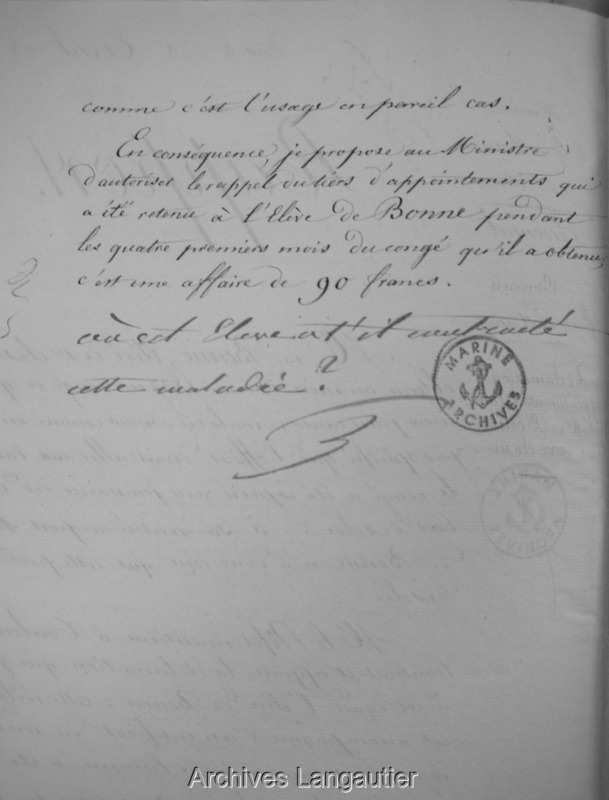 comme c'est l'usage en pareil cas.
En conséquence, je propose au Ministre
d'autoriser le rappel du tiers d'appointements qui
a été retenu à l'Elève de Bonne pendant
les quatre premiers mois du congé qu'il a obtenu,
c'est une affaire de 90 francs.
où cet Eleve a t'il contracté
cette maladie ?
MARINE
ARCHIVES
Archives Langautier